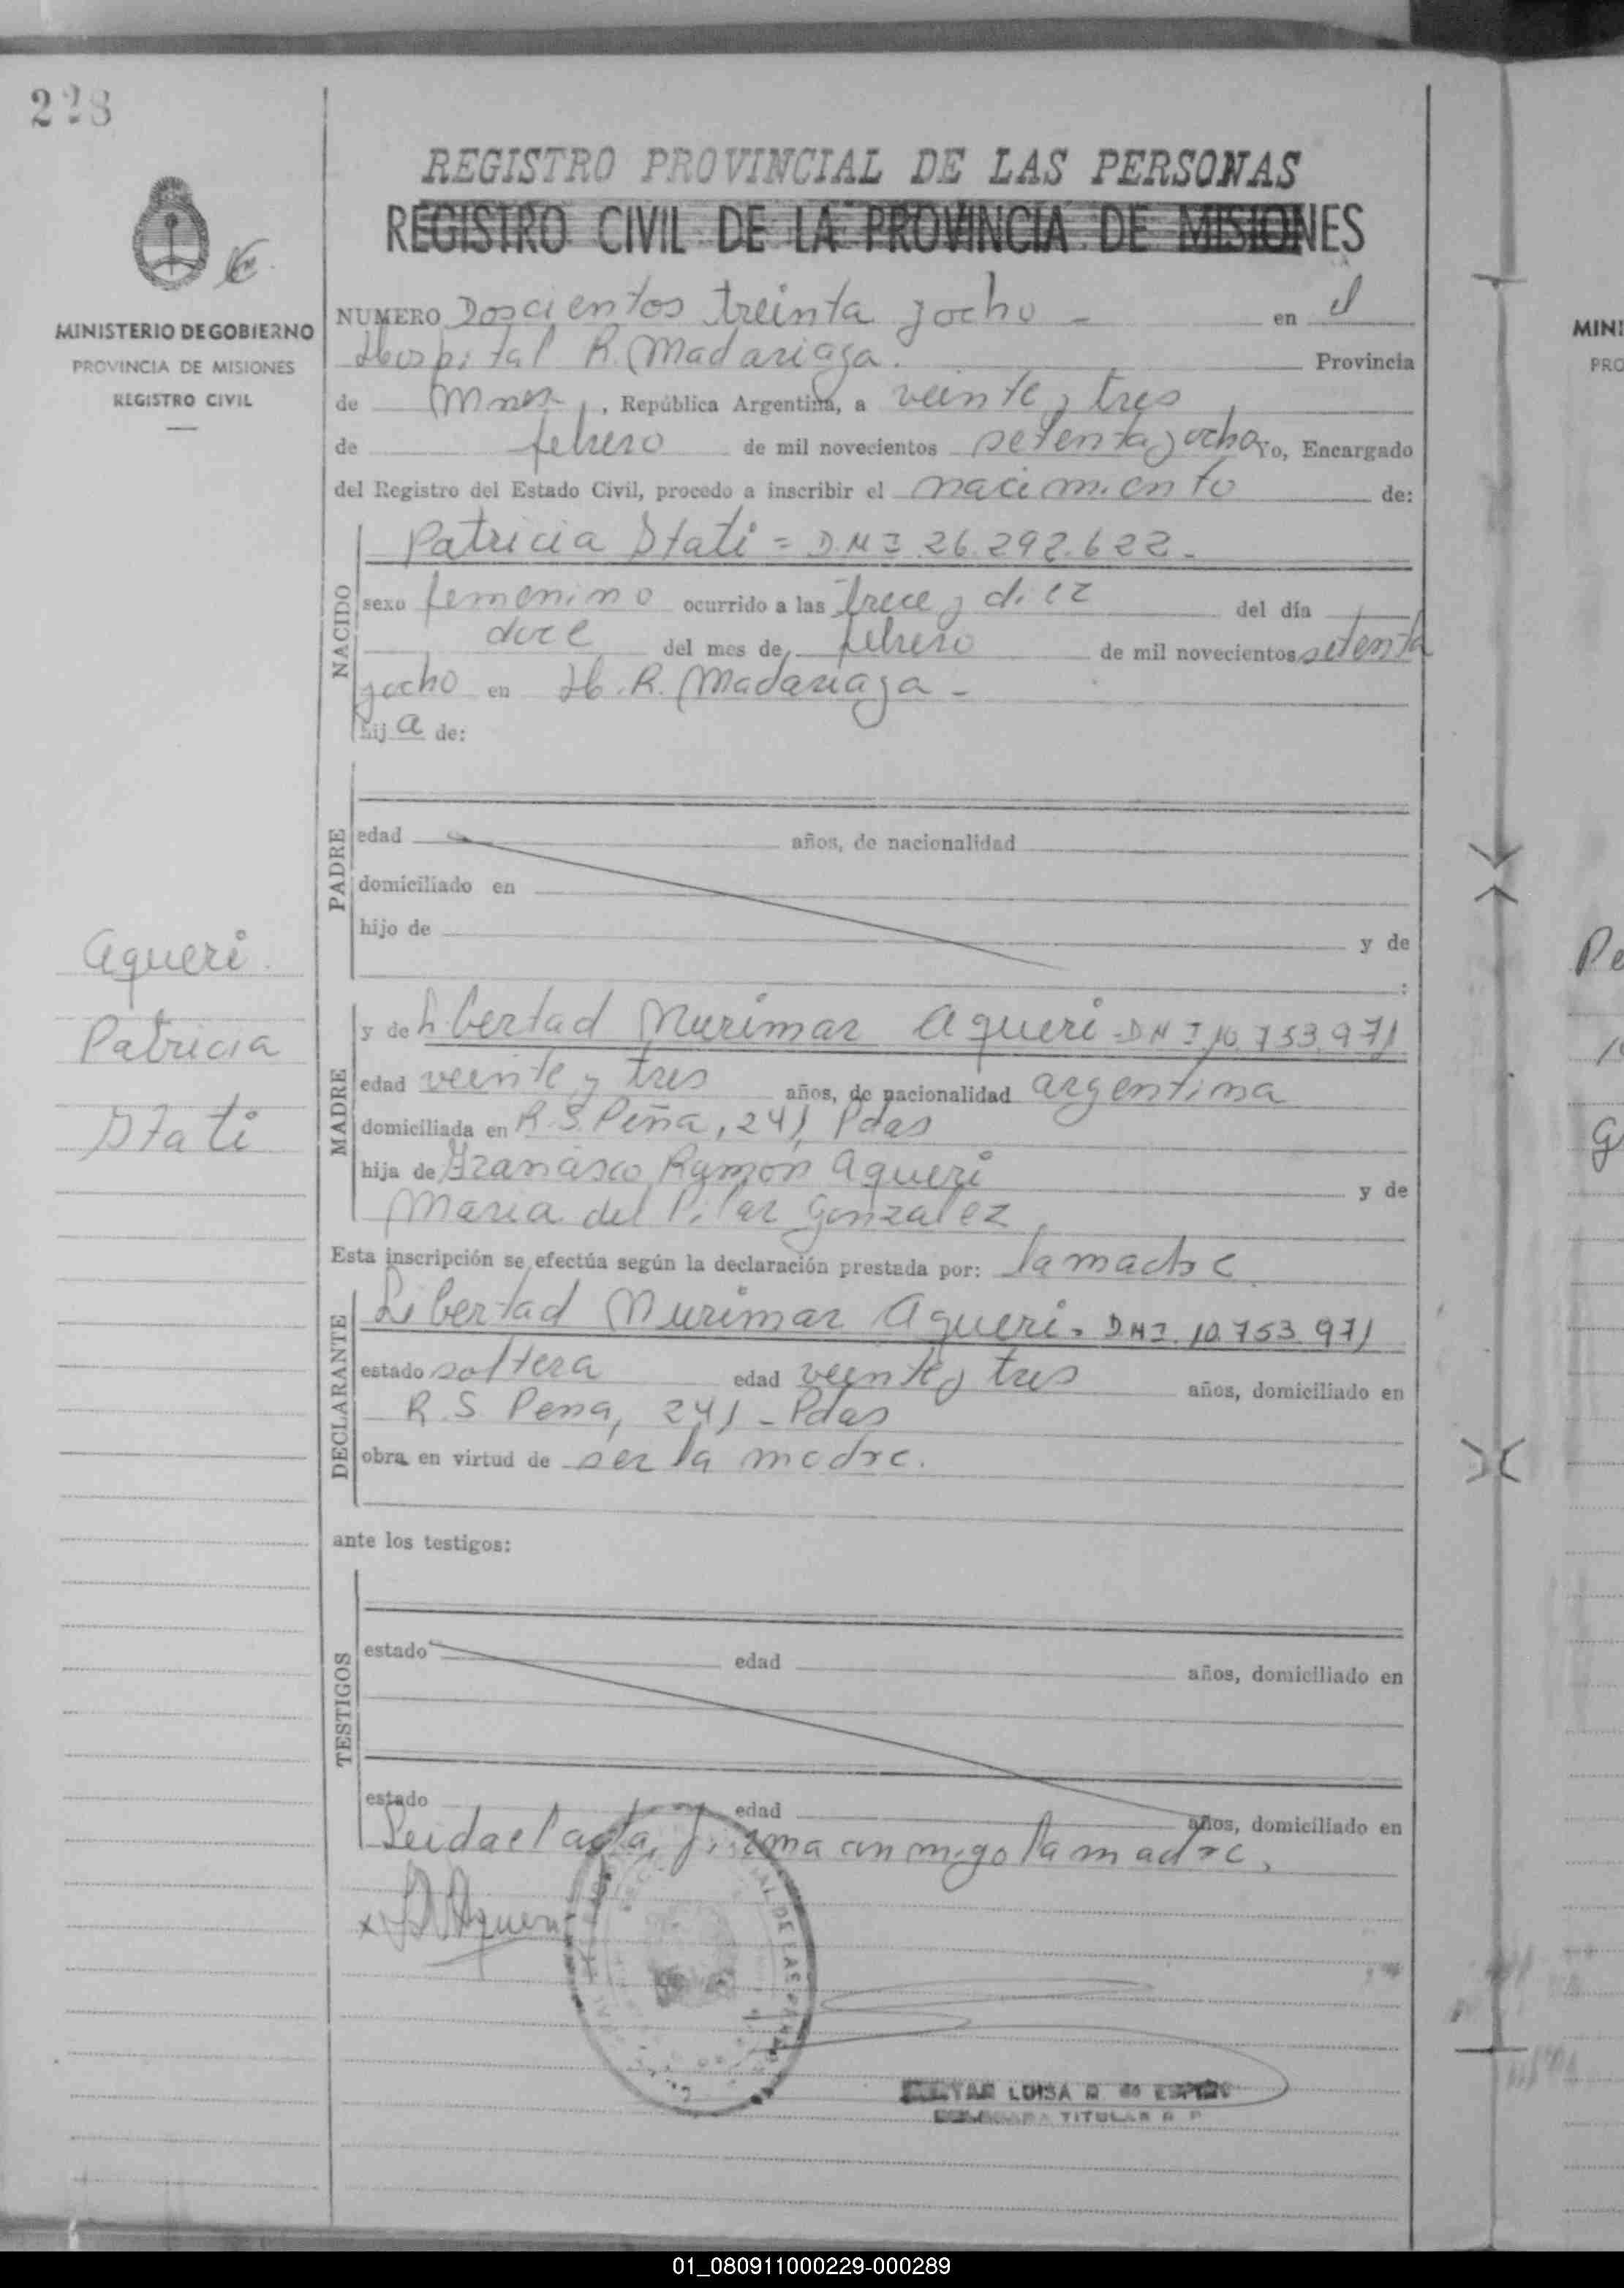 228
REGISTRO PROVINCIAL DE LAS PERSONAS
REGISTRO CIVIL DE LA PROVINCIA DE MISIONES
MINISTERIO DE GOBIERNO
PROVINCIA DE MISIONES
REGISTRO CIVIL
NUMERO Doscientos treinta y ocho - en el
Hospital R. Madariaga. Provincia
de Mnes , República Argentina, a veinte y tres
de febrero de mil novecientos setenta y ocho Yo, Encargado
del Registro del Estado Civil, procedo a inscribir el nacimiento de:
NACIDO
Patricia Stati = D.N.I. 26.292.622-
sexo femenino ocurrido a las trece y diez del día
doce del mes de febrero de mil novecientos setenta
y ocho en H. R. Madariaga -
hij a de:
PADRE
edad años, de nacionalidad
domiciliado en
hijo de y de
:
Aqueri
Patricia
Stati
MADRE
y de Libertad Murimar Aqueri - DNI 10.753.971
edad veinte y tres años, de nacionalidad argentina
domiciliada en R. S. Peña, 241, Pdas
hija de Francisco Ramón Aqueri y de
Maria del Pilar Gonzalez,
Esta inscripción se efectúa según la declaración prestada por: la madre
DECLARANTE
Libertad Murimar Aqueri. DNI. 10.753.971
estado soltera edad veinte y tres años, domiciliado en
R. S. Pena, 241 - Pdas
obra en virtud de ser la madre.
ante los testigos:
TESTIGOS
estado edad años, domiciliado en
estado edad años, domiciliado en
Leida el acta, firma conmigo la madre,
x Aqueri
DE LAS
LUISA
TITULAR
MINI
PRO
Pe
G
01_080911000229-000289